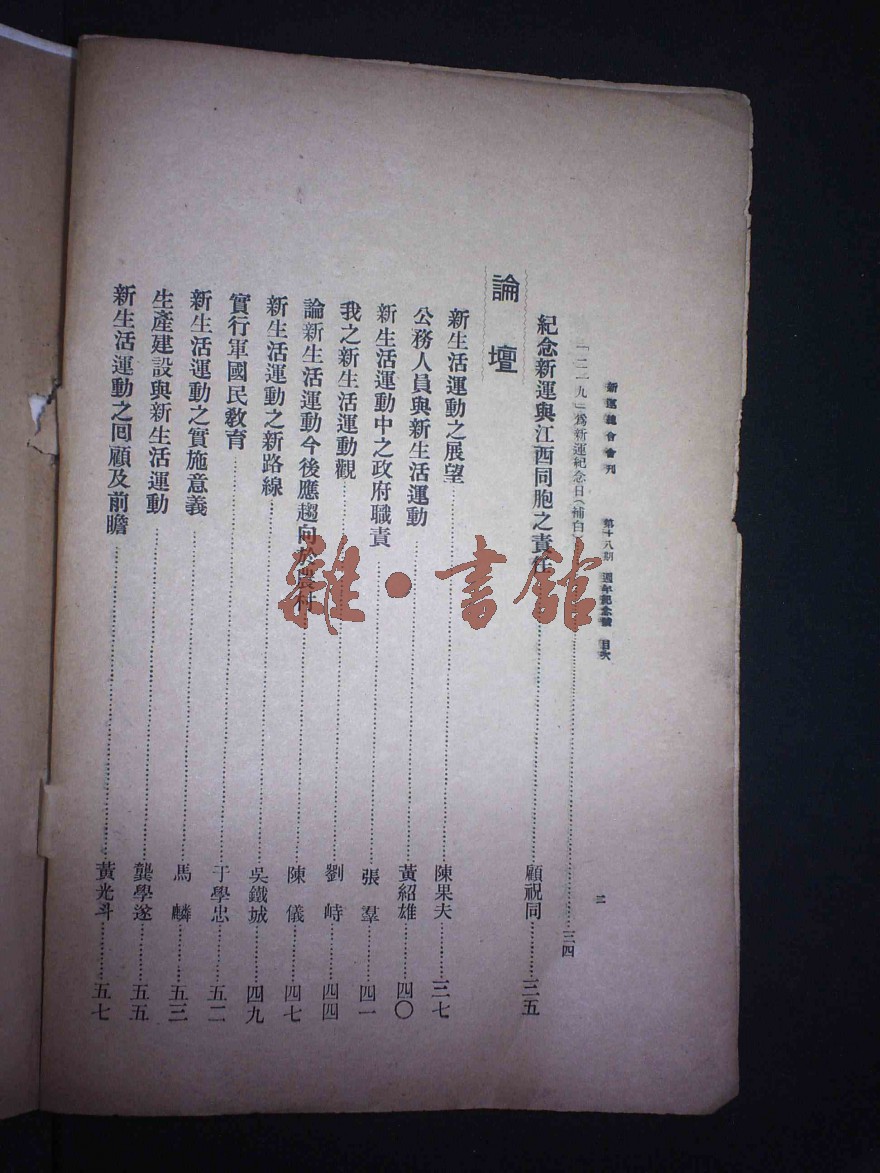 新運總會會刊 第十八期 週年紀念號 目次 二
「二一九」為新運紀念日(補白)……三四
紀念新運與江西同胞之責任……顧祝同……三五
論壇
新生活運動之展望……陳果夫……三七
公務人員與新生活運動……黃紹雄……四〇
新生活運動中之政府職責……張羣……四一
我之新生活運動觀……劉峙……四四
論新生活運動今後應趨向於農村……陳儀……四七
新生活運動之新路線……吳鐵城……四九
實行軍國民教育……于學忠……五二
新生活運動之實施意義……馬麟……五三
生產建設與新生活運動……龔學遂……五五
新生活運動之回顧及前瞻……黃光斗……五七
雜·書館